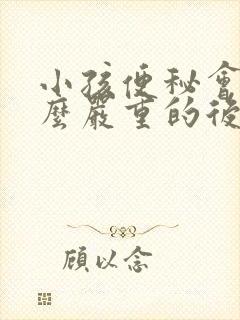 小孩便秘會
麼嚴重的後
顧以念